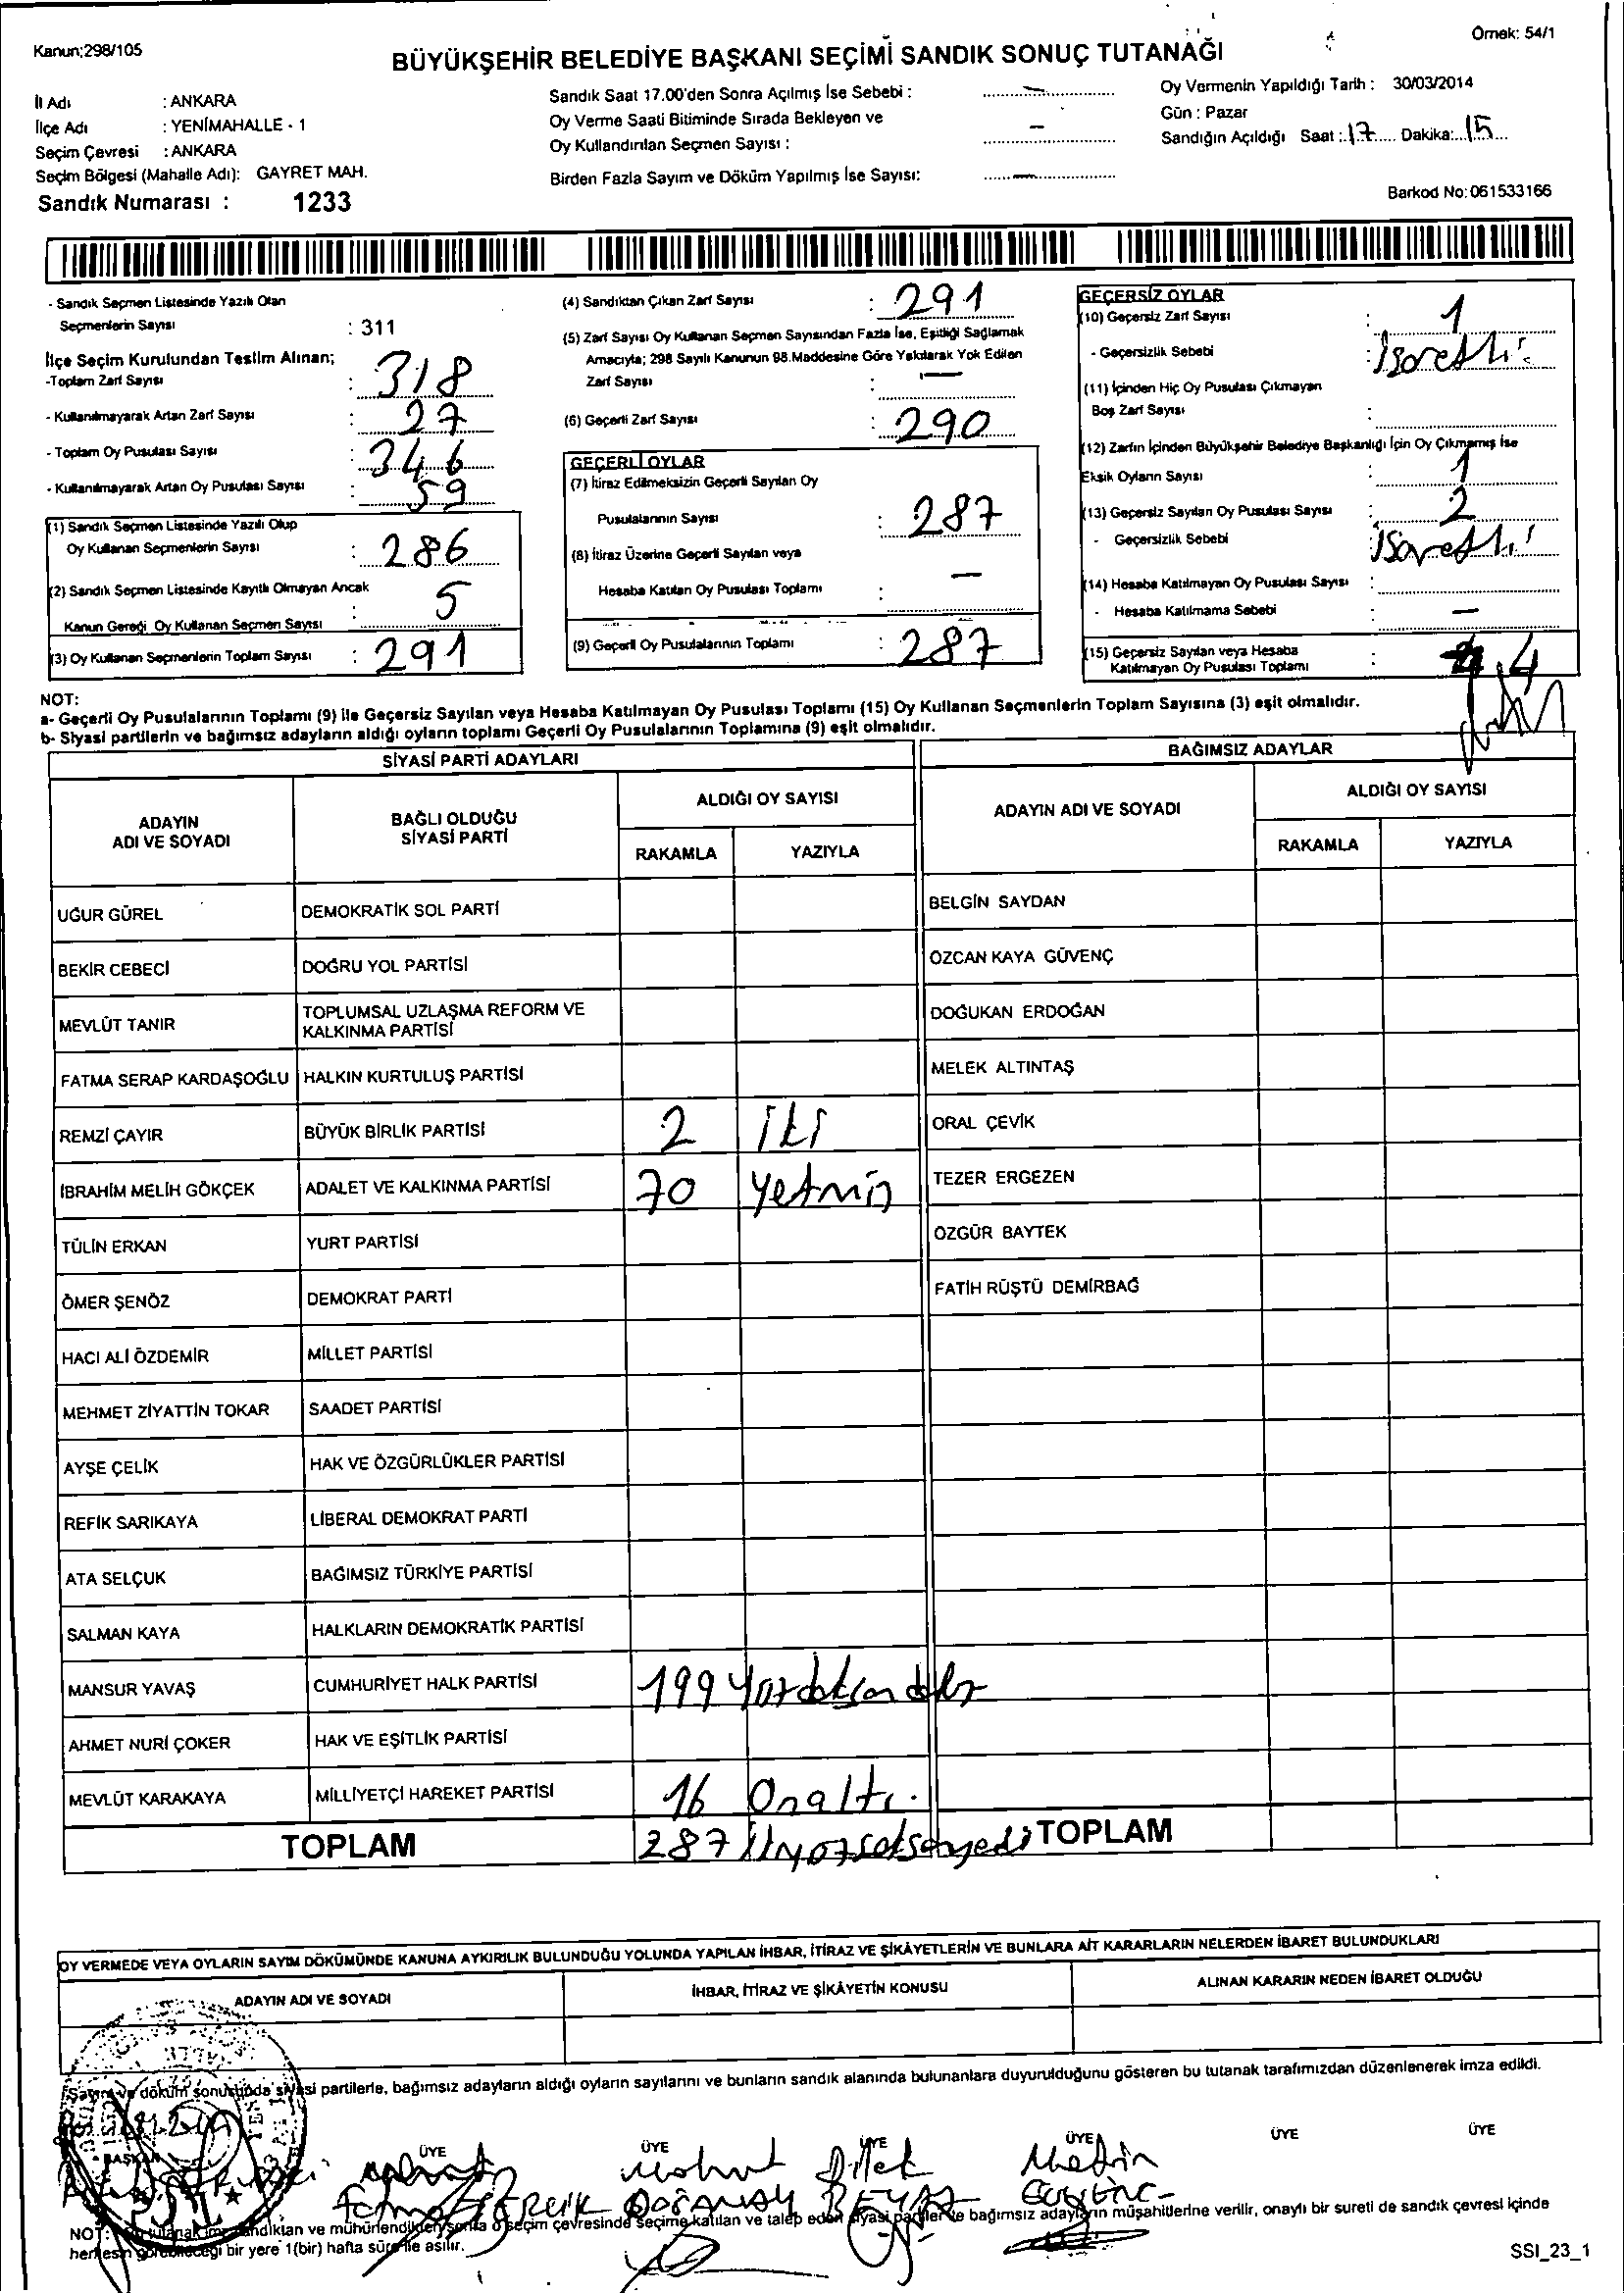 Kanun;298/105
Örnek: 54/1
BÜYÜKŞEHİR BELEDİYE BAŞKANI SEÇİMİ SANDIK SONUÇ TUTANAĞI
İl Adı : ANKARA
İlçe Adı : YENİMAHALLE - 1
Seçim Çevresi : ANKARA
Seçim Bölgesi (Mahalle Adı): GAYRET MAH.
Sandık Numarası : 1233
Sandık Saat 17.00'den Sonra Açılmış İse Sebebi : —
Oy Verme Saati Bitiminde Sırada Bekleyen ve
Oy Kullandırılan Seçmen Sayısı : —
Birden Fazla Sayım ve Döküm Yapılmış İse Sayısı: —
Oy Vermenin Yapıldığı Tarih : 30/03/2014
Gün : Pazar
Sandığın Açıldığı Saat : 17 Dakika: 15
Barkod No: 061533166
- Sandık Seçmen Listesinde Yazılı Olan
Seçmenlerin Sayısı : 311
İlçe Seçim Kurulundan Teslim Alınan;
-Toplam Zarf Sayısı : 318
- Kullanılmayarak Artan Zarf Sayısı : 27
- Toplam Oy Pusulası Sayısı : 346
- Kullanılmayarak Artan Oy Pusulası Sayısı : 59
(1) Sandık Seçmen Listesinde Yazılı Olup
Oy Kullanan Seçmenlerin Sayısı : 286
(2) Sandık Seçmen Listesinde Kayıtlı Olmayan Ancak
Kanun Gereği Oy Kullanan Seçmen Sayısı : 5
(3) Oy Kullanan Seçmenlerin Toplam Sayısı : 291
(4) Sandıktan Çıkan Zarf Sayısı : 291
(5) Zarf Sayısı Oy Kullanan Seçmen Sayısından Fazla İse, Eşitliği Sağlamak
Amacıyla; 298 Sayılı Kanunun 98.Maddesine Göre Yakılarak Yok Edilen
Zarf Sayısı : —
(6) Geçerli Zarf Sayısı : 290
GEÇERLİ OYLAR
(7) İtiraz Edilmeksizin Geçerli Sayılan Oy
Pusulalarının Sayısı : 287
(8) İtiraz Üzerine Geçerli Sayılan veya
Hesaba Katılan Oy Pusulası Toplamı : —
(9) Geçerli Oy Pusulalarının Toplamı : 287
GEÇERSİZ OYLAR
(10) Geçersiz Zarf Sayısı : 1
- Geçersizlik Sebebi : İşaretli
(11) İçinden Hiç Oy Pusulası Çıkmayan
Boş Zarf Sayısı :
(12) Zarfın İçinden Büyükşehir Belediye Başkanlığı İçin Oy Çıkmamış İse
Eksik Oyların Sayısı : 1
(13) Geçersiz Sayılan Oy Pusulası Sayısı : 2
- Geçersizlik Sebebi : İşaretli
(14) Hesaba Katılmayan Oy Pusulası Sayısı :
- Hesaba Katılmama Sebebi : —
(15) Geçersiz Sayılan veya Hesaba
Katılmayan Oy Pusulası Toplamı : 4
NOT:
a- Geçerli Oy Pusulalarının Toplamı (9) ile Geçersiz Sayılan veya Hesaba Katılmayan Oy Pusulası Toplamı (15) Oy Kullanan Seçmenlerin Toplam Sayısına (3) eşit olmalıdır.
b- Siyasi partilerin ve bağımsız adayların aldığı oyların toplamı Geçerli Oy Pusulalarının Toplamına (9) eşit olmalıdır.
SİYASİ PARTİ ADAYLARI BAĞIMSIZ ADAYLAR
ADAYIN ADI VE SOYADI BAĞLI OLDUĞU SİYASİ PARTİ ALDIĞI OY SAYISI ADAYIN ADI VE SOYADI ALDIĞI OY SAYISI
RAKAMLA YAZIYLA RAKAMLA YAZIYLA
UĞUR GÜREL DEMOKRATİK SOL PARTİ BELGİN SAYDAN
BEKİR CEBECİ DOĞRU YOL PARTİSİ ÖZCAN KAYA GÜVENÇ
MEVLÜT TANIR TOPLUMSAL UZLAŞMA REFORM VE KALKINMA PARTİSİ DOĞUKAN ERDOĞAN
FATMA SERAP KARDAŞOĞLU HALKIN KURTULUŞ PARTİSİ MELEK ALTINTAŞ
REMZİ ÇAYIR BÜYÜK BİRLİK PARTİSİ 2 iki ORAL ÇEVİK
İBRAHİM MELİH GÖKÇEK ADALET VE KALKINMA PARTİSİ 70 yetmiş TEZER ERGEZEN
TÜLİN ERKAN YURT PARTİSİ ÖZGÜR BAYTEK
ÖMER ŞENÖZ DEMOKRAT PARTİ FATİH RÜŞTÜ DEMİRBAĞ
HACI ALİ ÖZDEMİR MİLLET PARTİSİ
MEHMET ZİYATTİN TOKAR SAADET PARTİSİ
AYŞE ÇELİK HAK VE ÖZGÜRLÜKLER PARTİSİ
REFİK SARIKAYA LİBERAL DEMOKRAT PARTİ
ATA SELÇUK BAĞIMSIZ TÜRKİYE PARTİSİ
SALMAN KAYA HALKLARIN DEMOKRATİK PARTİSİ
MANSUR YAVAŞ CUMHURİYET HALK PARTİSİ 199 Yüzdoksandokuz
AHMET NURİ ÇOKER HAK VE EŞİTLİK PARTİSİ
MEVLÜT KARAKAYA MİLLİYETÇİ HAREKET PARTİSİ 16 Onaltı.
TOPLAM 287 ikiyüzseksenyedi TOPLAM
OY VERMEDE VEYA OYLARIN SAYIM DÖKÜMÜNDE KANUNA AYKIRILIK BULUNDUĞU YOLUNDA YAPILAN İHBAR, İTİRAZ VE ŞİKÂYETLERİN VE BUNLARA AİT KARARLARIN NELERDEN İBARET BULUNDUKLARI
ADAYIN ADI VE SOYADI İHBAR, İTİRAZ VE ŞİKÂYETİN KONUSU ALINAN KARARIN NEDEN İBARET OLDUĞU
Sayım ve döküm sonucunda siyasi partilerle, bağımsız adayların aldığı oyların sayılarını ve bunların sandık alanında bulunanlara duyurulduğunu gösteren bu tutanak tarafımızdan düzenlenerek imza edildi.
BAŞKAN ÜYE ÜYE ÜYE ÜYE ÜYE ÜYE
Dilek Metin
Fatma DOĞANAY BEYAZ
NOT: Bu tutanak imzalandıktan ve mühürlendikten sonra o seçim çevresinde seçime katılan ve talep eden siyasi partiler ile bağımsız adayların müşahitlerine verilir, onaylı bir sureti de sandık çevresi içinde
herkesin görebileceği bir yere 1(bir) hafta süre ile asılır.
SSI_23_1